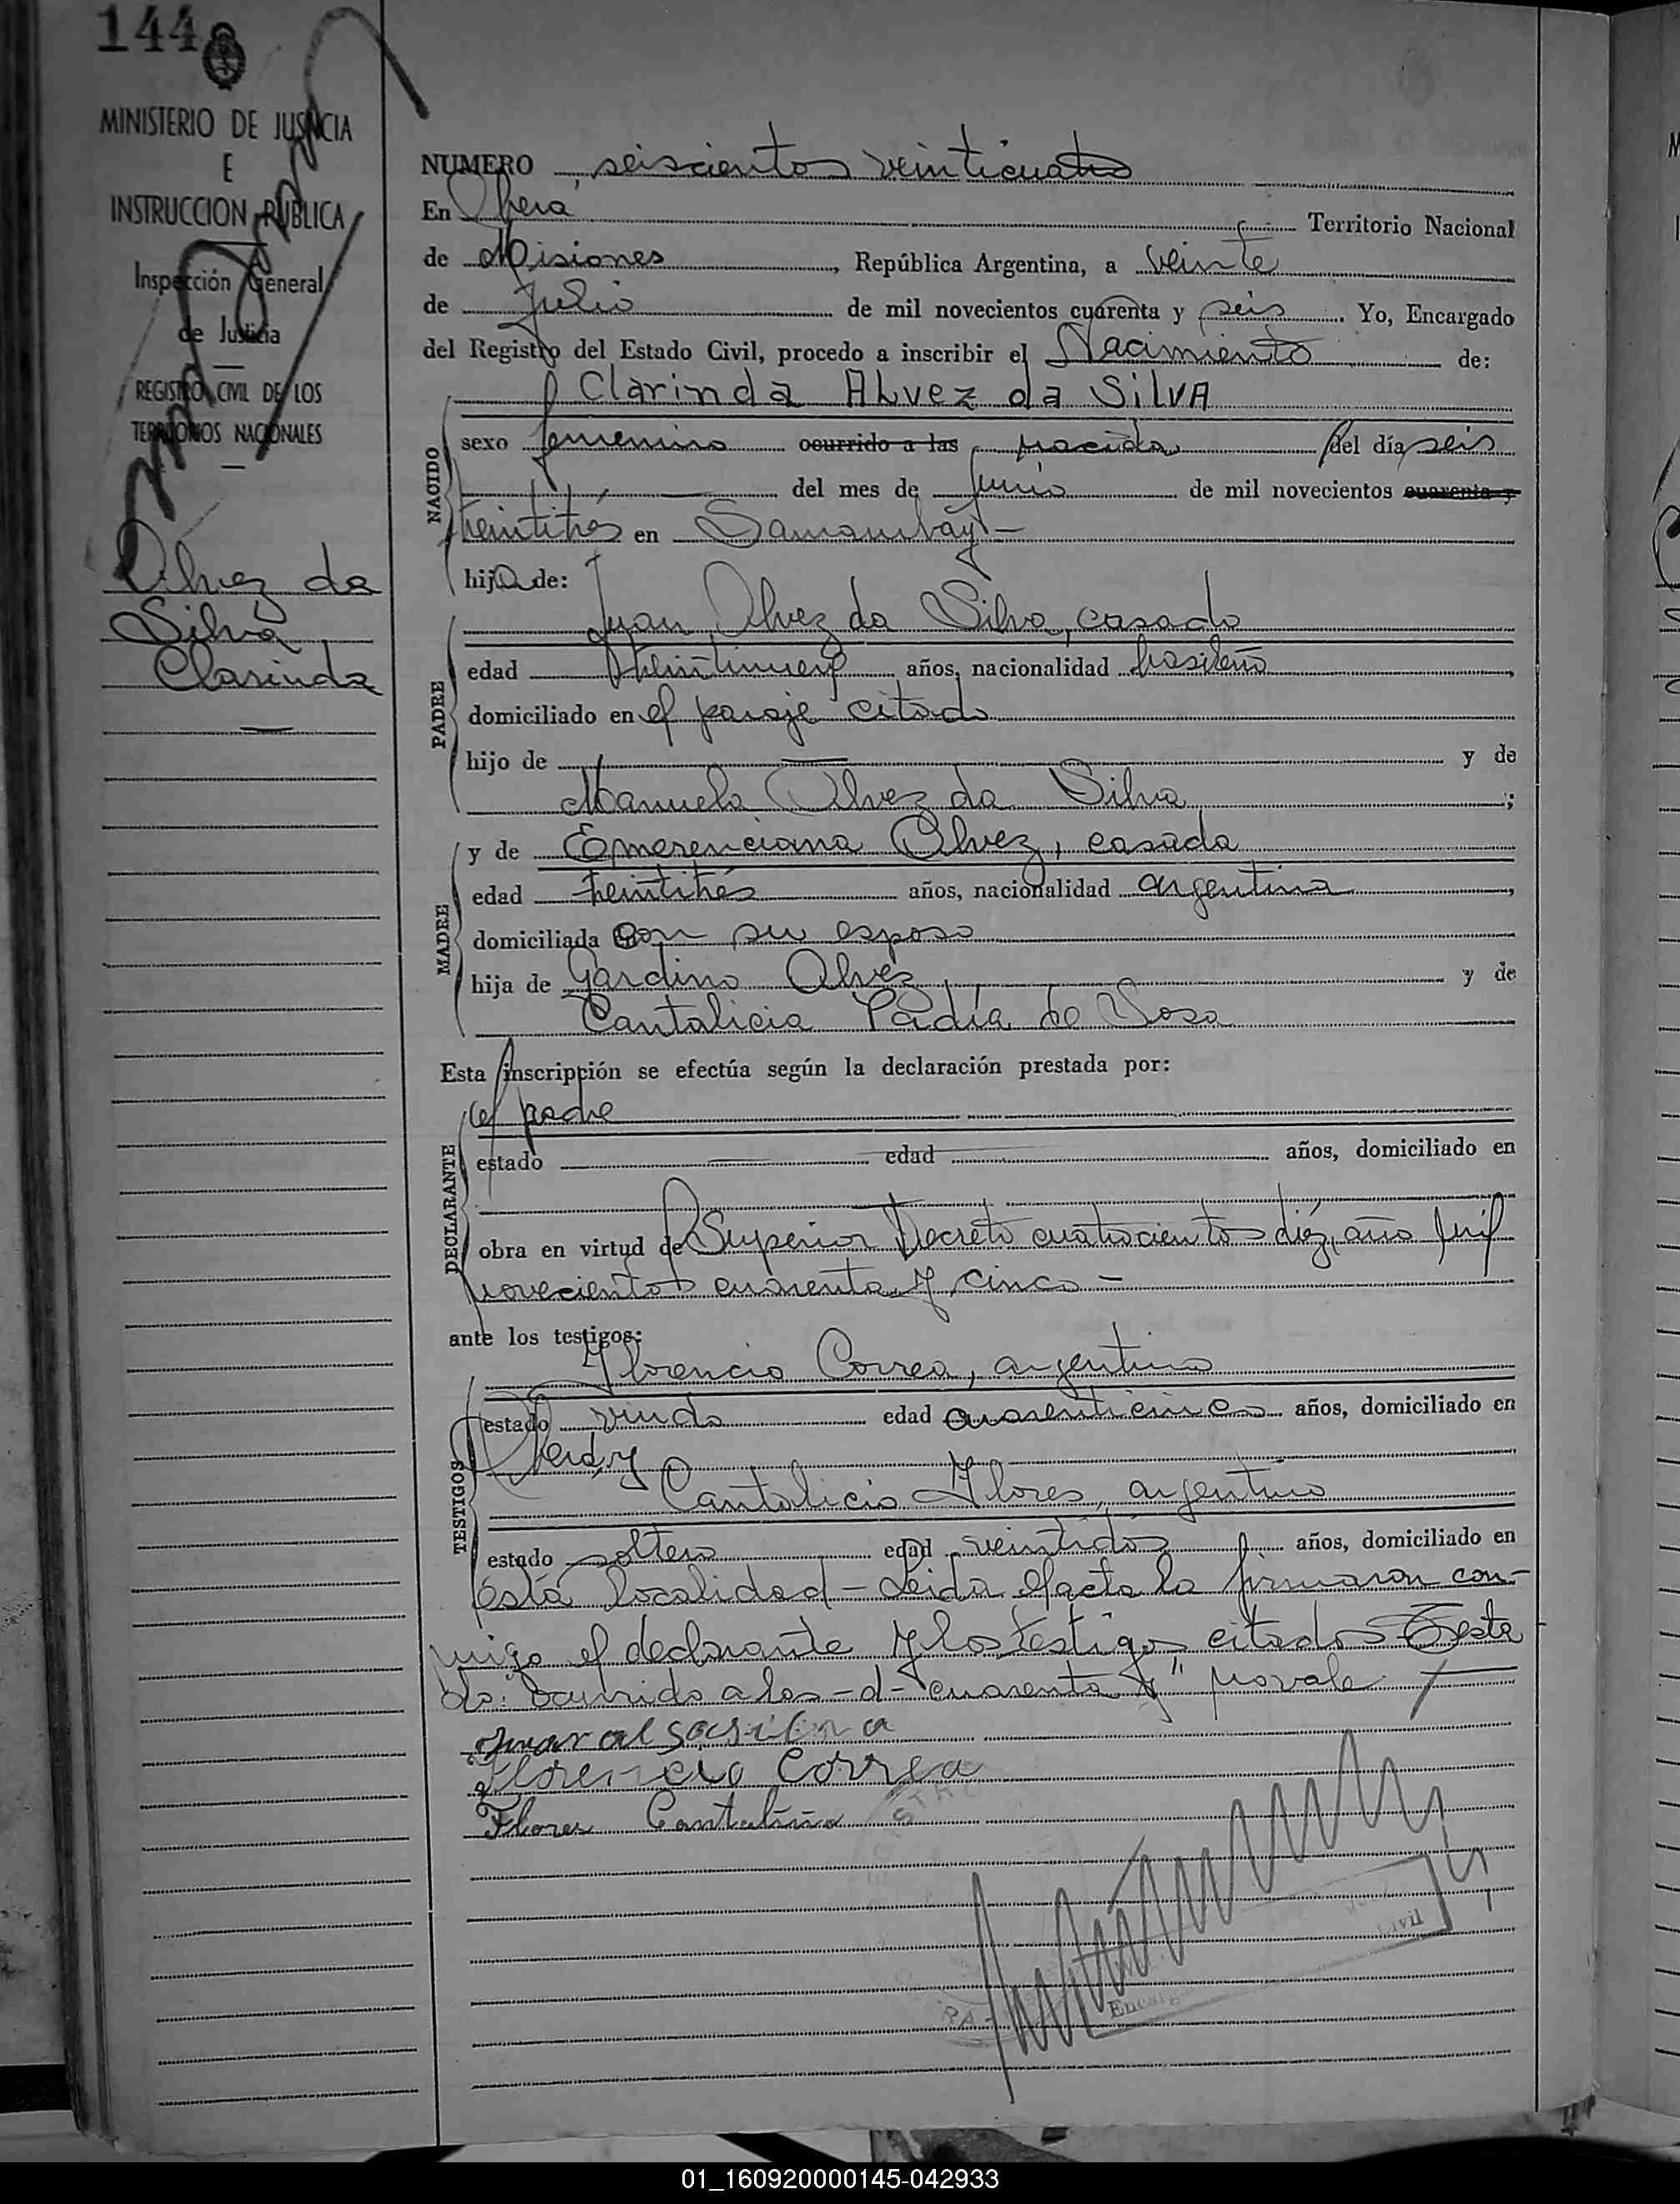 144
MINISTERIO DE JUSTICIA
E
INSTRUCCION PUBLICA
Inspección General
de Justicia
REGISTRO CIVIL DE LOS
TERRITORIOS NACIONALES
Alvez da
Silva
Clarinda
NUMERO seiscientos veinticuatro
En Oberá Territorio Nacional
de Misiones, República Argentina, a veinte
de Julio de mil novecientos cuarenta y seis. Yo, Encargado
del Registro del Estado Civil, procedo a inscribir el Nacimiento de:
Clarinda ALvez da SiLVA
NACIDO
sexo femenino ocurrido a las nacida del día seis
del mes de Junio de mil novecientos cuarenta y
treintitrés en Samambay -
hija de:
Juan Alvez da Silva, casado
PADRE
edad treintinueve años, nacionalidad brasileño
domiciliado en el paraje citado
hijo de — y de
Manuela Alvez da Silva;
y de Emerenciana Alvez, casada
MADRE
edad treintitrés años, nacionalidad argentina,
domiciliada con su esposo
hija de Jardino Alvez y de
Cantalicia Padía de Sosa
Esta inscripción se efectúa según la declaración prestada por:
el padre
DECLARANTE
estado edad años, domiciliado en
obra en virtud de Superior Decreto cuatrocientos diéz, año mil
novecientos cuarenta y cinco -
ante los testigos:
Florencio Correa, argentino
TESTIGOS
estado viudo edad cuarenticinco años, domiciliado en
Oberá, y
Cantalicio Flores, argentino
estado soltero edad veintidós años, domiciliado en
esta localidad - Leida el acta la firmaron con-
migo el declarante y los testigos citados - Testa
do: ocurrido a las - d - cuarenta y" no vale
Florencio Correa
Flores
REGISTRO
Encarg
Civil
01_160920000145-042933